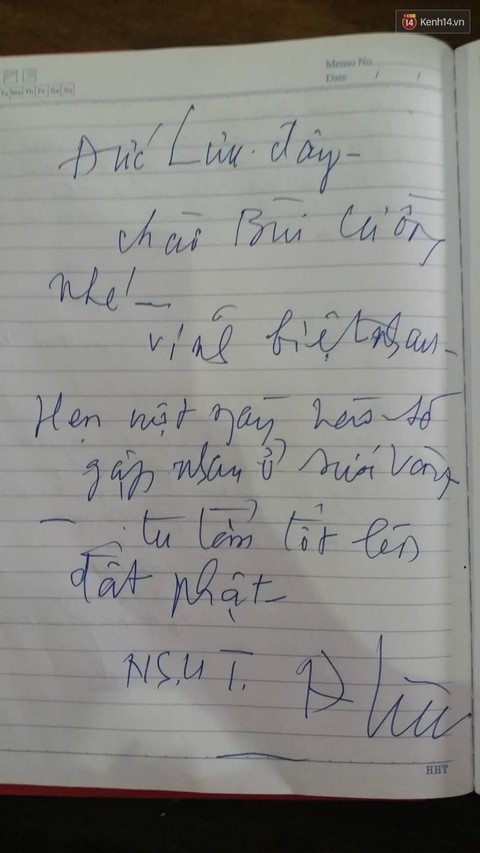 14 Kenh14.vn
Memo No.
Date / /
Tu We Th Fr Sa Su
Đức Lưu đây -
chào Bùi Cường
nhé! -
vĩnh biệt nhau -
Hẹn một ngày nào đó
gặp nhau ở suối vàng
- tu tâm tốt lên
đất phật -
N.S.Ư T. Đ Lưu
HHT